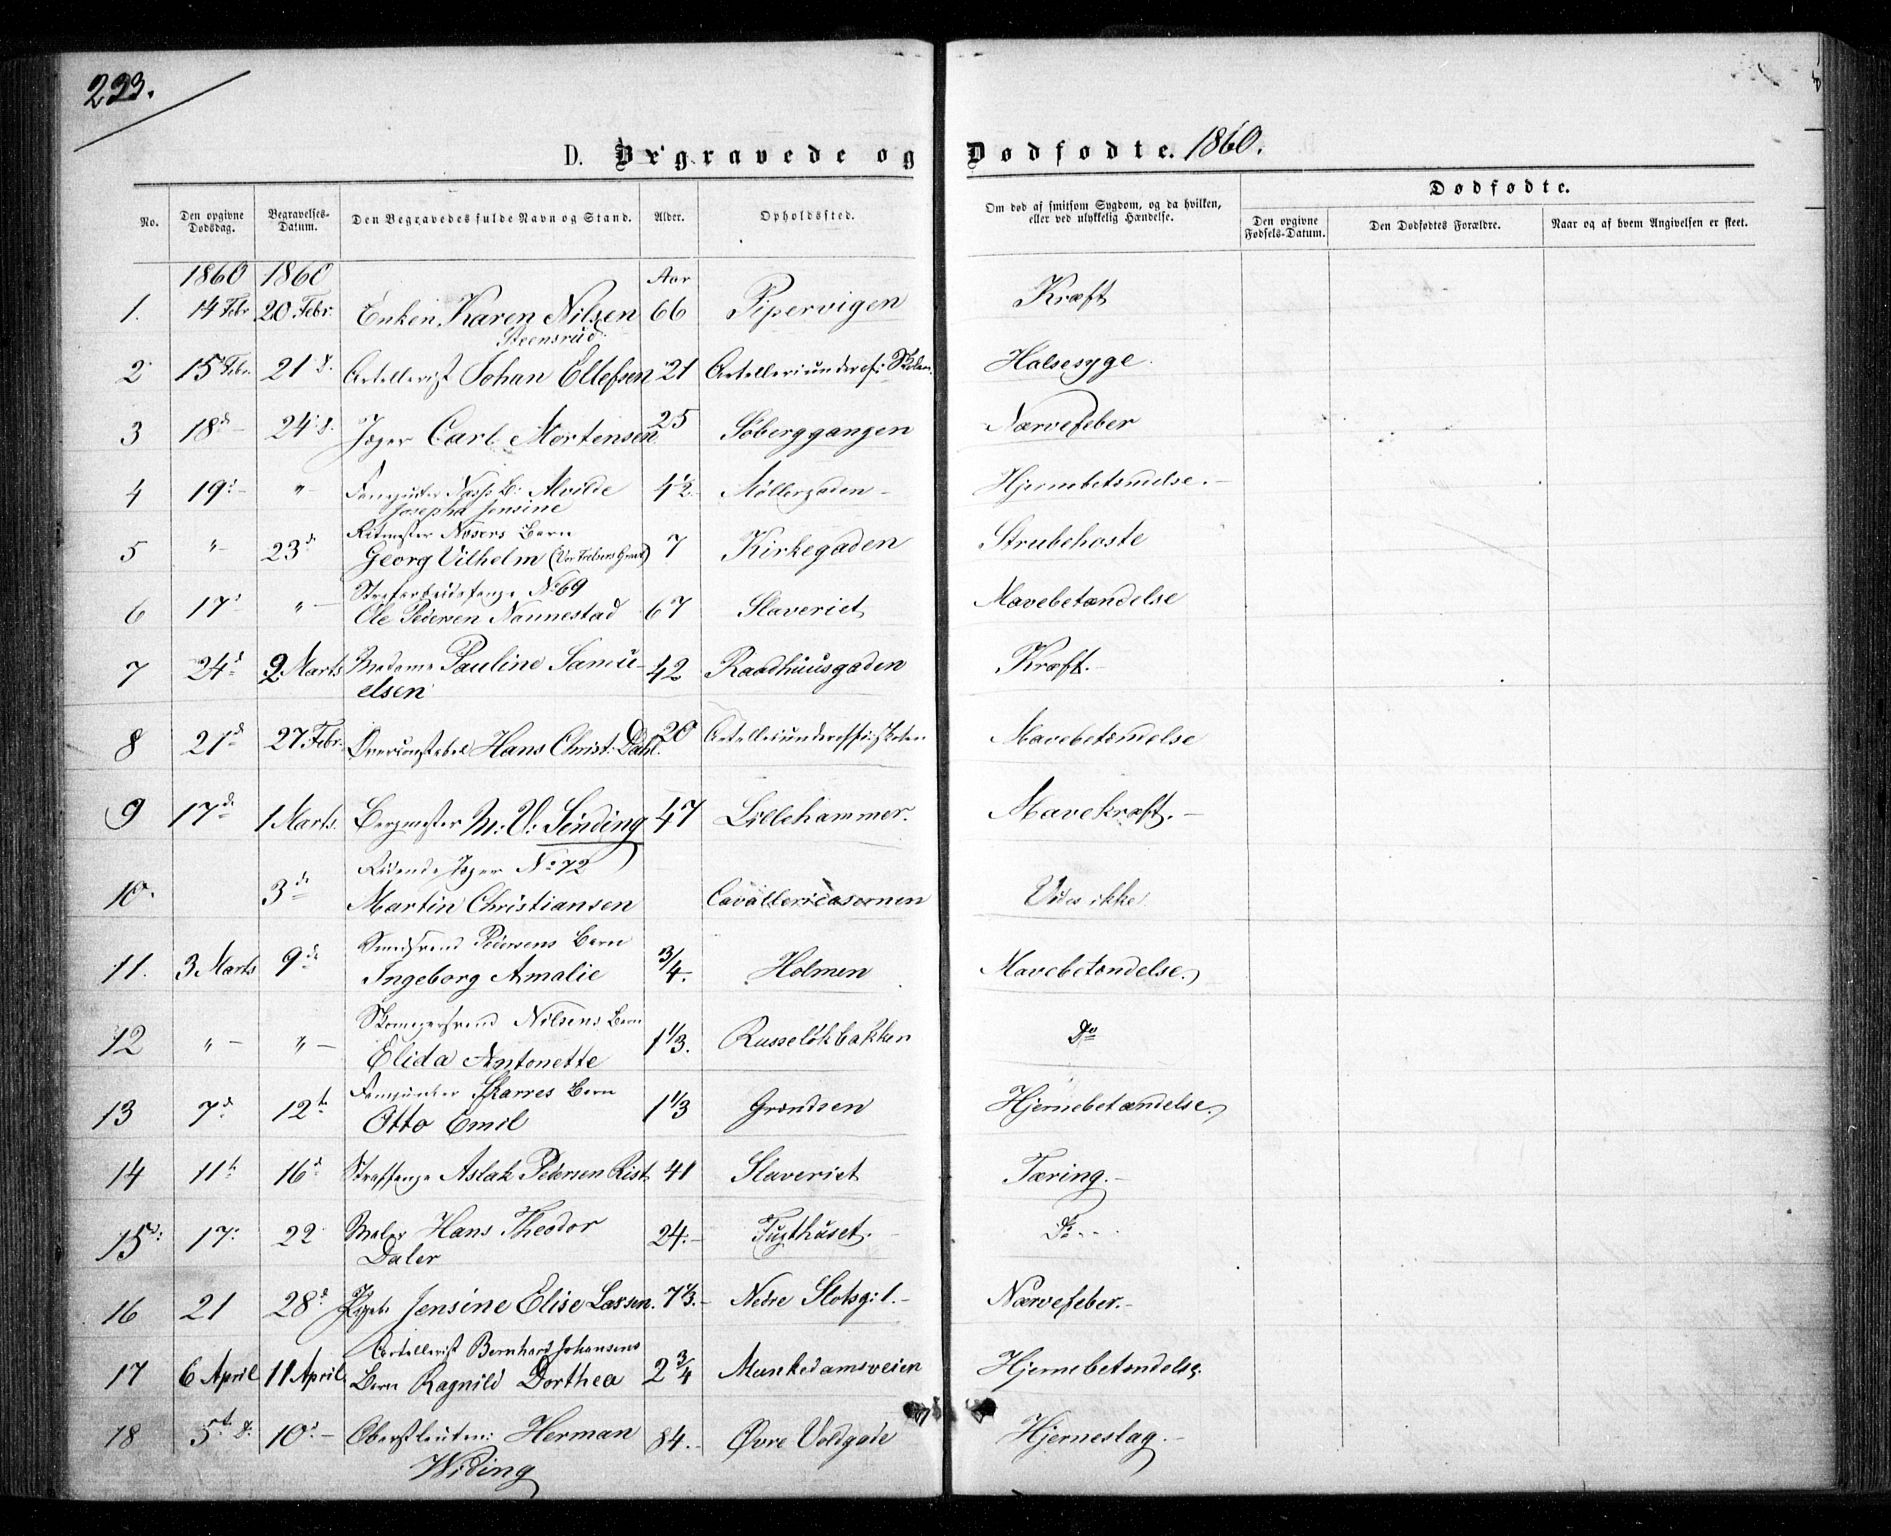 233.
D. Begravede og Dødfødte. 1860.
No. Den opgivne Dødsdag. Begravelses-Datum. Den Begravedes fulde Navn og Stand. Alder. Opholdssted. Om død af smitsom Sygdom, og da hvilken, eller ved ulykkelig Hændelse. Dødfødte.
Den opgivne Fødsels-Datum. Den Dødfødtes Forældre. Naar og af hvem Angivelsen er skeet.
1860 1860 Aar
1. 14 Febr 20 Febr. Enken Karen Nilsen 66 Pipervigen Kræft
Steensrud
2 15 Febr. 21 d. Artellerist Johan Ellefsen 21 Artelleriunderof: Skolen Halsesyge
3 18 d 24 d. Jæger Carl Mortensen 25 Søberggangen Nærvefeber
4 19 d " Alvilde Møllergaden Hjernebetændelse.
Josepha Jensine
5 " 23 d Ritmester Næsers Barn
Georg Vilhelm 7 Kirkegaden Strubehoste
6 17 d " No 69
Ole Pedersen Nannestad 67 Slaveriet Mavebetændelse
7 24 d 2 Marts Madame Pauline Samu- 42 Raadhuusgaden Kræft.
elsen
8 21 d 27 Febr. Overconstabel Hans Christ: Dahl. 20 Artelleriunderoffi: skolen Mavebetændelse
9 17 d 1 Marts. Bergmester M: V: Sinding 47 Lillehammer. Mavekræft.
10. 3 d Ridende Jæger No 72
Martin Christiansen Cavallericasernen Vides ikke
11. 3 Marts 9 d Pedersens Barn
Ingeborg Amalie 3/4. Holmen Mavebetændelse.
12 " " Nilsens Barn
Elida Antonette 1 1/3. Russeløkbakken Do
13 7 d 12 te Fanejunker Skarres Barn
Otto Emil 1 1/3 Grændsen Hjernebetændelse.
14 11 te 16 d Straffange Aslak Pedersen Rist 41 Slaveriet Tæring.
15 17. 22 Maler Hans Theodor 24. Tugthuset. Do
Daler
16 21 28 d Jensine Elise Larsen. 7 1/3. Nedre Slotsg: 1. Nærvefeber.
17 6 April 11 April. Artellerist Bernhard Johansens
Barn Ragnild Dorthea 2 3/4 Munkedamsveien Hjernebetændelse
18 5 t d. 10 d Oberstleutn: Herman 84. Øvre Voldgade Hjerneslag.
Widing